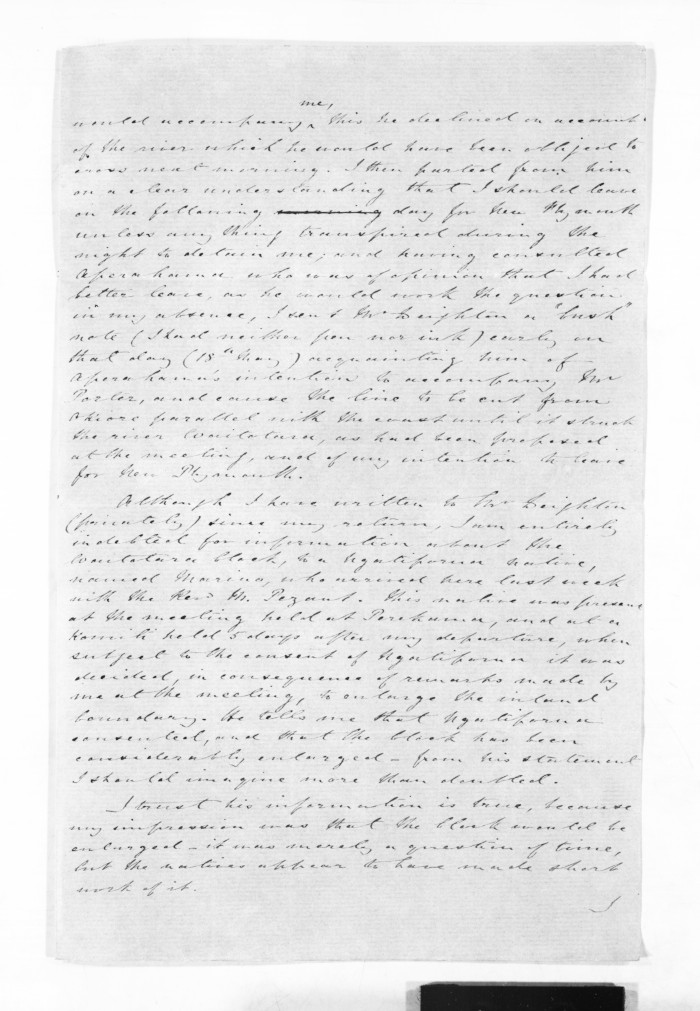 me,
would accompany ^ this he declined on account
of the river which he would have been obliged to
cross next morning. I then parted from him
on a clear understanding that I should leave
on the following morning day for New Plymouth
unless any thing transpired during the
night to detain me; and having consulted
Aperahama who was of opinion that I had
better leave, as he would work the question
in my absence, I sent Mr Deighton a "bush"
note (I had neither pen nor ink) early on
that day (18th May) acquainting him of
Aperahama's intention to accompany Mr
Porter, and cause the line to be cut from
parallel with the coast until it struck
the river Waitotara, as had been proposed
at the meeting, and of my intention to leave
for New Plymouth.
Although I have written to Mr Deighton
(privately) since my return, I am entirely
indebted for information about the
Waitotara block, to a Ngatiporua native,
named Marino, who arrived here last week
with the Revd M. Pezant. This native was present
at the meeting held at Perekama, and at a
Komiti held 5 days after my departure, when
subject to the consent of Ngatiporua it was
decided, in consequence of remarks made by
me at the meeting, to enlarge the inland
boundary. He tells me that Ngatiporua
consented, and that the block has been
considerably enlarged – from his statement
I should imagine more than doubled.
I trust his information is true, because
my impression was that the block would be
enlarged – it was merely a question of time,
but the natives appear to have made short
work of it.
I